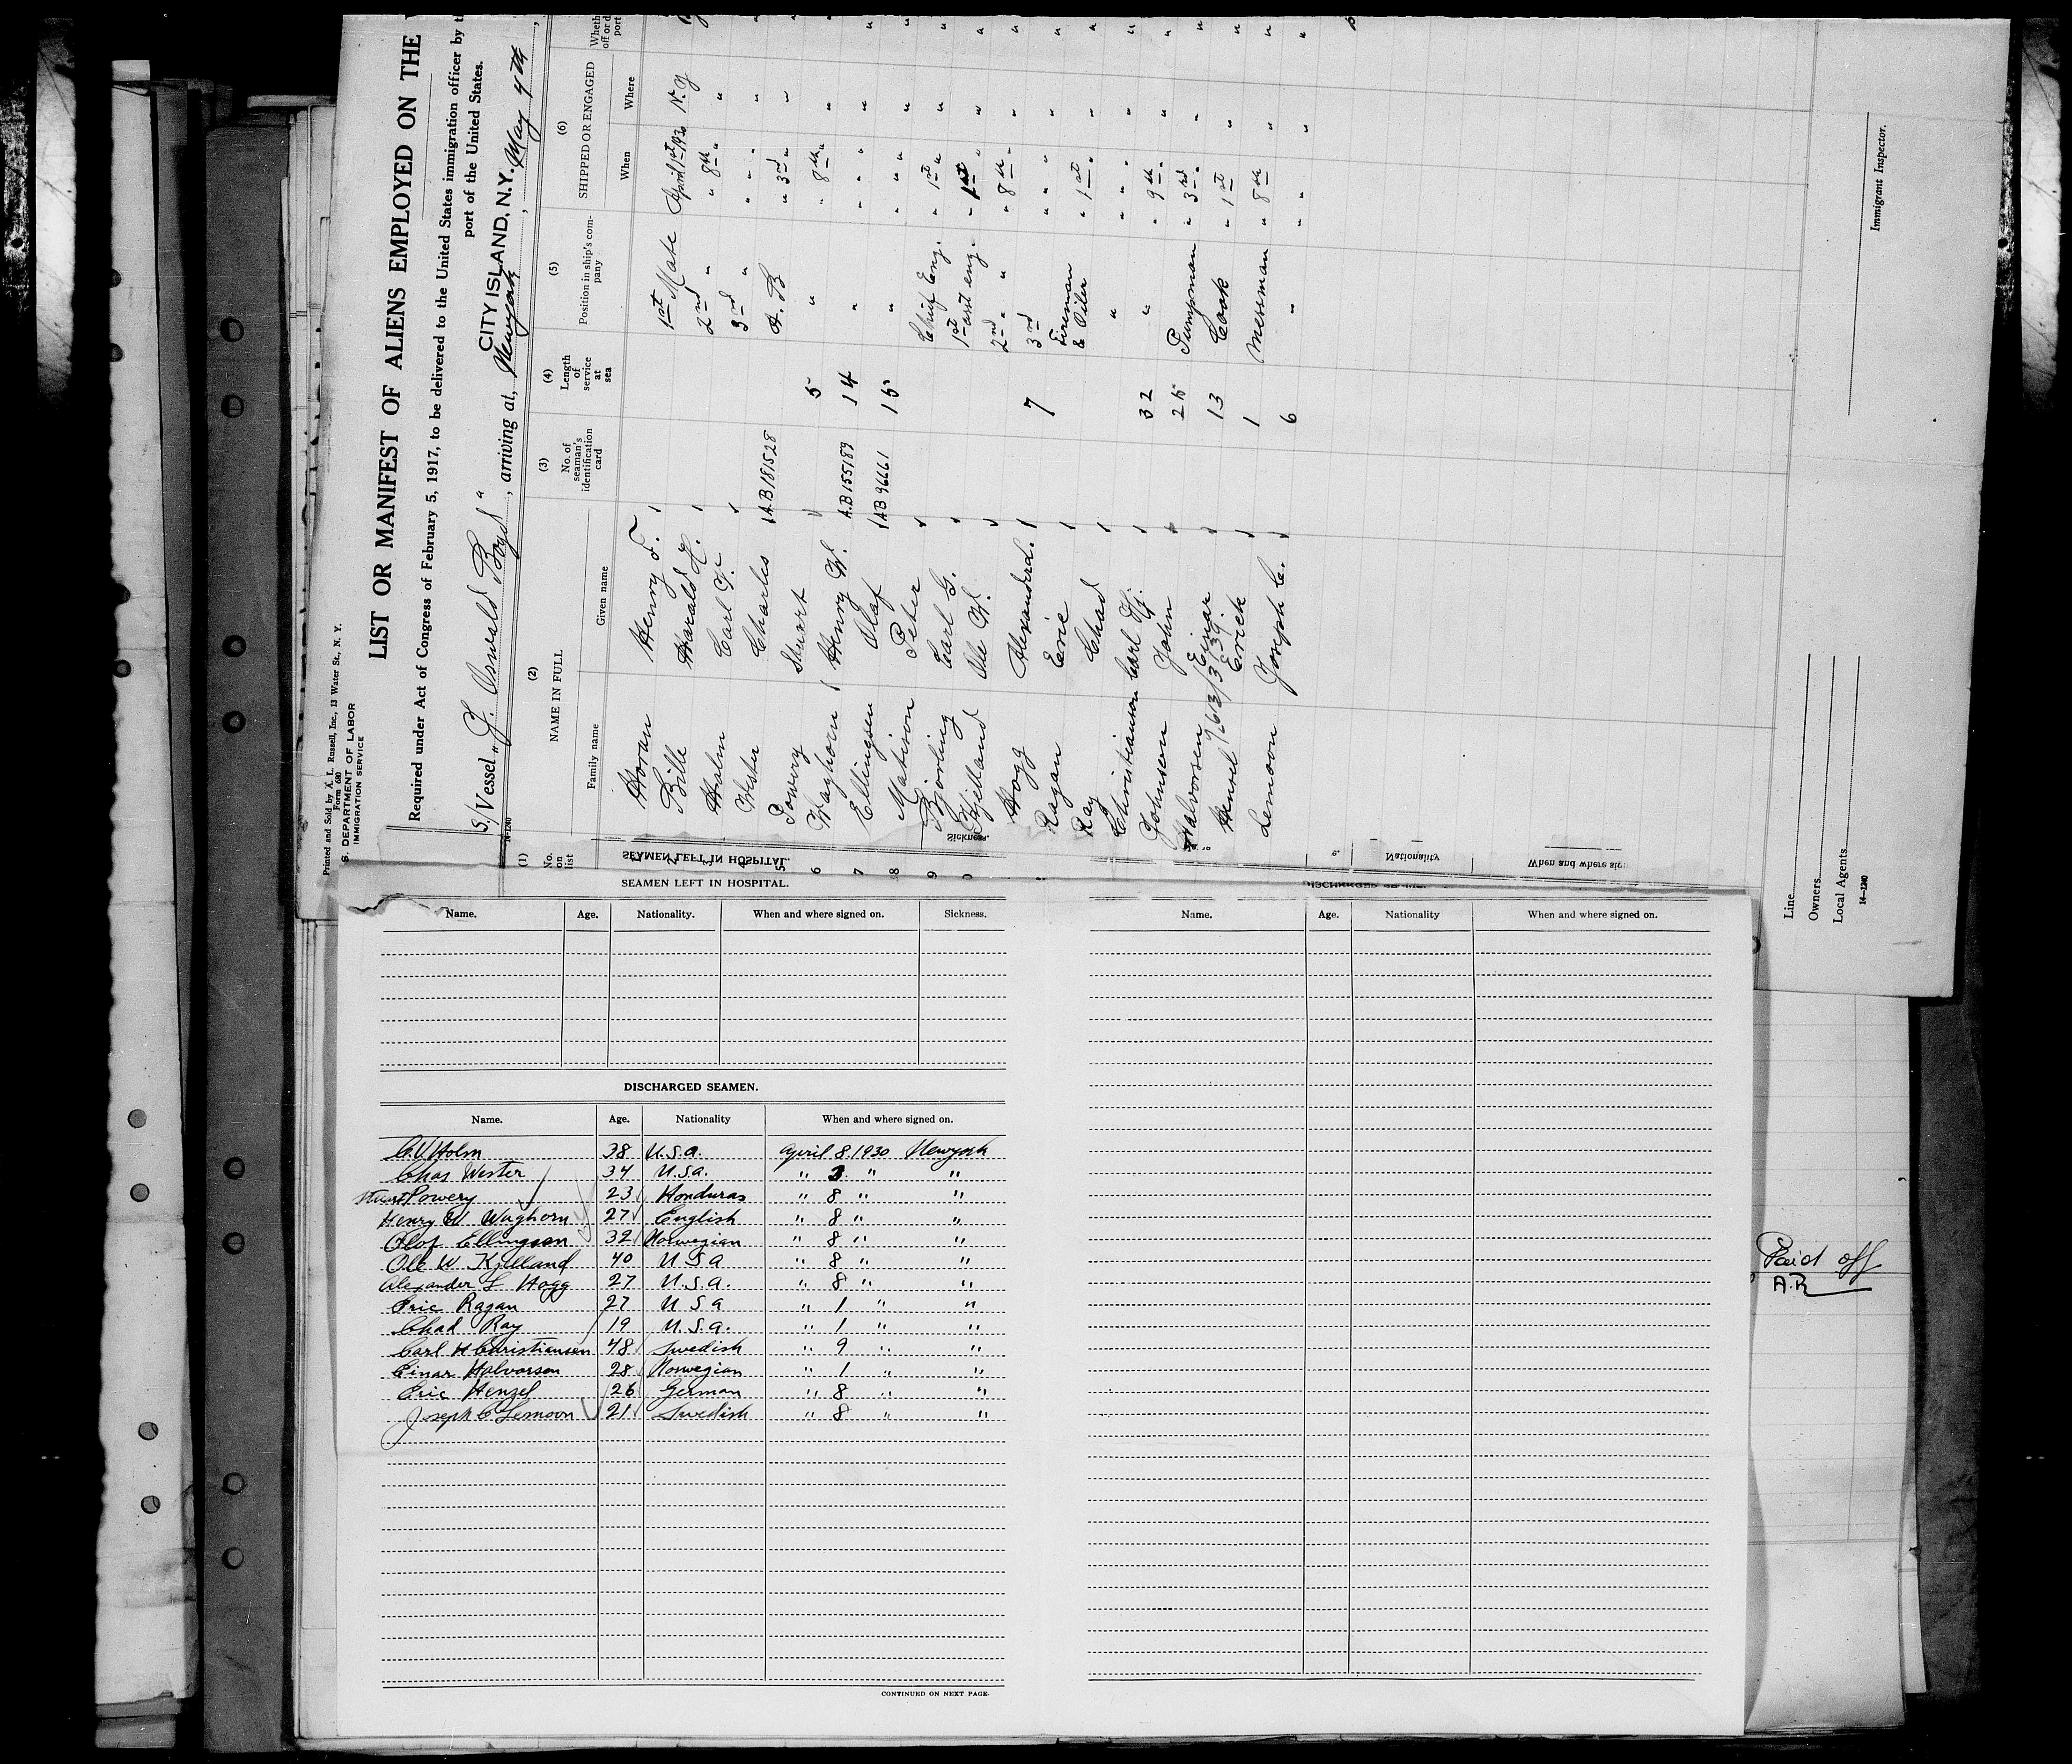 Printed and Sold by A. L. Russell, Inc., 13 Water St., N. Y.
Form 680
S. DEPARTMENT OF LABOR
IMMIGRATION SERVICE
LIST OR MANIFEST OF ALIENS EMPLOYED ON THE
Required under Act of Congress of February 5, 1917, to be delivered to the United States immigration officer by
port of the United States.
CITY ISLAND, N.Y.
S/Vessel "J. Oswald Boyd", arriving at, Newyork, May 4th,
14-1240
(1) (2) (3) (4) (5) (6)
No. on list
NAME IN FULL
Family name Given name
No. of seaman's identification card
Length of service at sea
Position in ship's company
SHIPPED OR ENGAGED
When Where
Horan Henry F. 1st Mate April 1st 1930 N.Y
Bille Harald H. 2nd " " 8th " "
Holm Carl V. 3rd " " " " "
Wester Charles AB 181528 A.B " 3rd " "
Powery Stuart 5 " " 8th " "
Waghorn Henry W. A.B 155189 14 " " " "
Ellingsen Olaf AB 96661 15 " " " "
Matison Peter Chief Eng. " 1st " "
Bjorling Carl G. 1st asst eng. " 1st "
Kjelland Ole W. 2nd " " " 8th " "
Hogg Alexander L. 7 3rd " " "
Ragan Eric Fireman & Oiler " 1st " "
Ray Chad " " " "
Christianson Carl H. 32 " " 9th " "
Johnson John 25 Pumpman " 3rd " "
Halvorsen Einar 13 Cook " 1st " "
Hensel Erick 1 Messman " 8th " "
Lemoon Joseph C. 6 " " " "
Immigrant Inspector.
Line
Owners
Local Agents
14-1240
SEAMEN LEFT IN HOSPITAL.
Name. Age. Nationality. When and where signed on. Sickness.
DISCHARGED SEAMEN.
Name. Age. Nationality When and where signed on.
C.V. Holm 38 U.S.a. April 8, 1930 Newyork
Chas Wester 34 U.Sa. " 3 " "
Stuart Powery 23 Honduras " 8 " "
Henry W Waghorn 27 English " 8 " "
Olof Ellingsen 32 Norwegian " 8 " "
Ole W Kjelland 40 U S a " 8 " "
Alexander L Hogg 27 U.S.a. " 8 " "
Eric Ragan 27 U S a " 1 " "
Chad Ray 19 U.S.a. " 1 " "
Carl H Christiansen 48 Swedish " 9 " "
Einar Halvorsen 28 Norwegian " 1 " "
Eric Henzel 26 German " 8 " "
Joseph C Lemoon 21 Swedish " 8 " "
CONTINUED ON NEXT PAGE.
Name. Age. Nationality When and where signed on.
Paid off
A.R